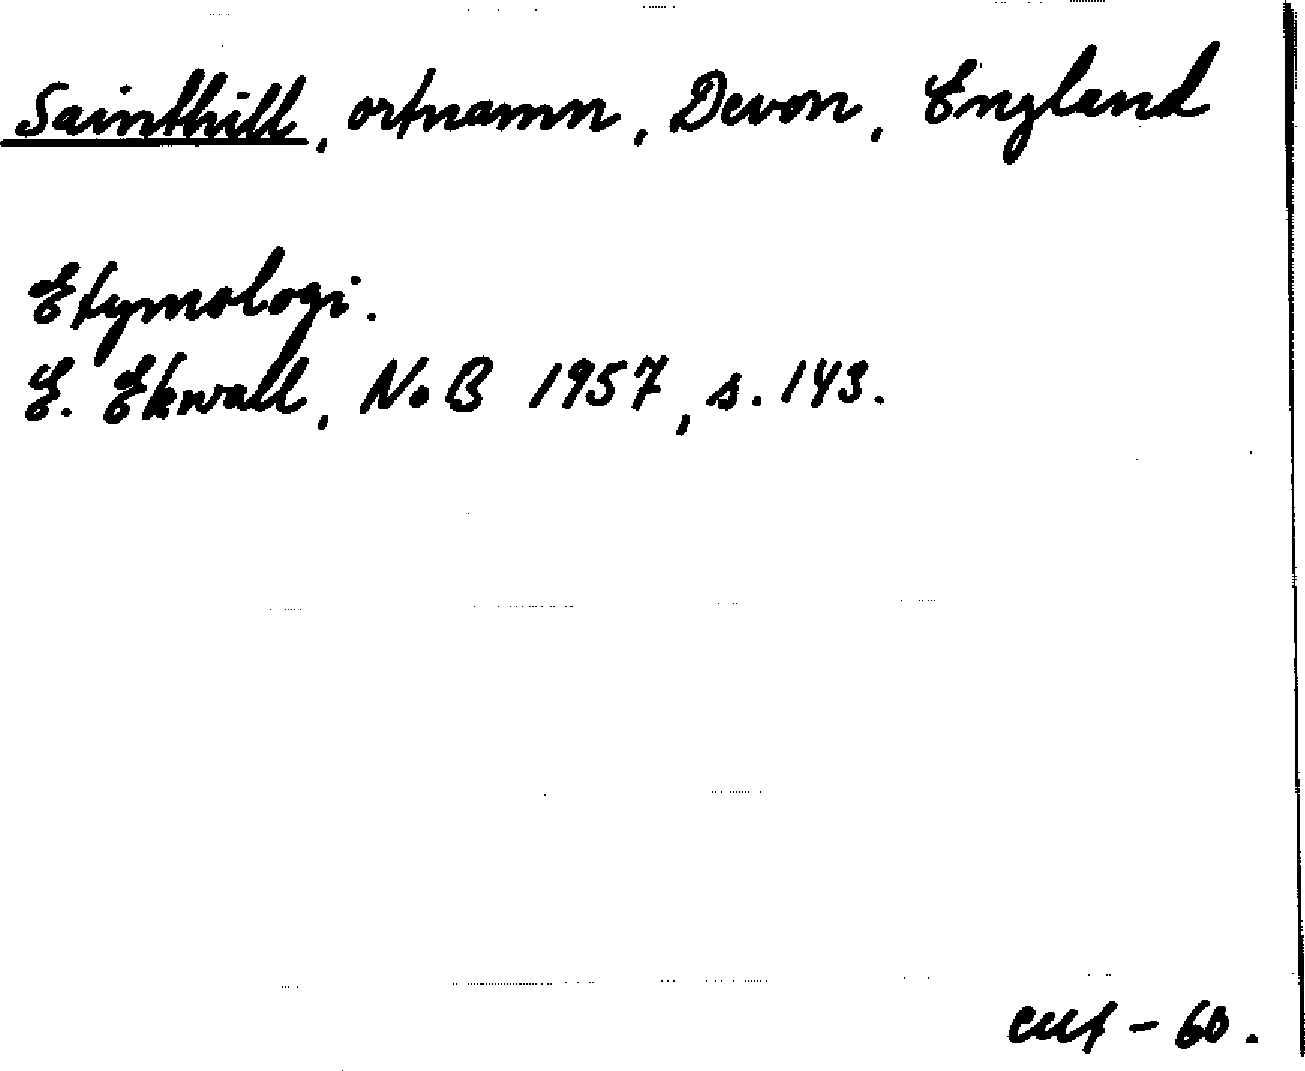 Sainthill, ortnamn, Devon, England
Etymologi.
E. Ekwall, NoB 1957, s. 143.
- 60.